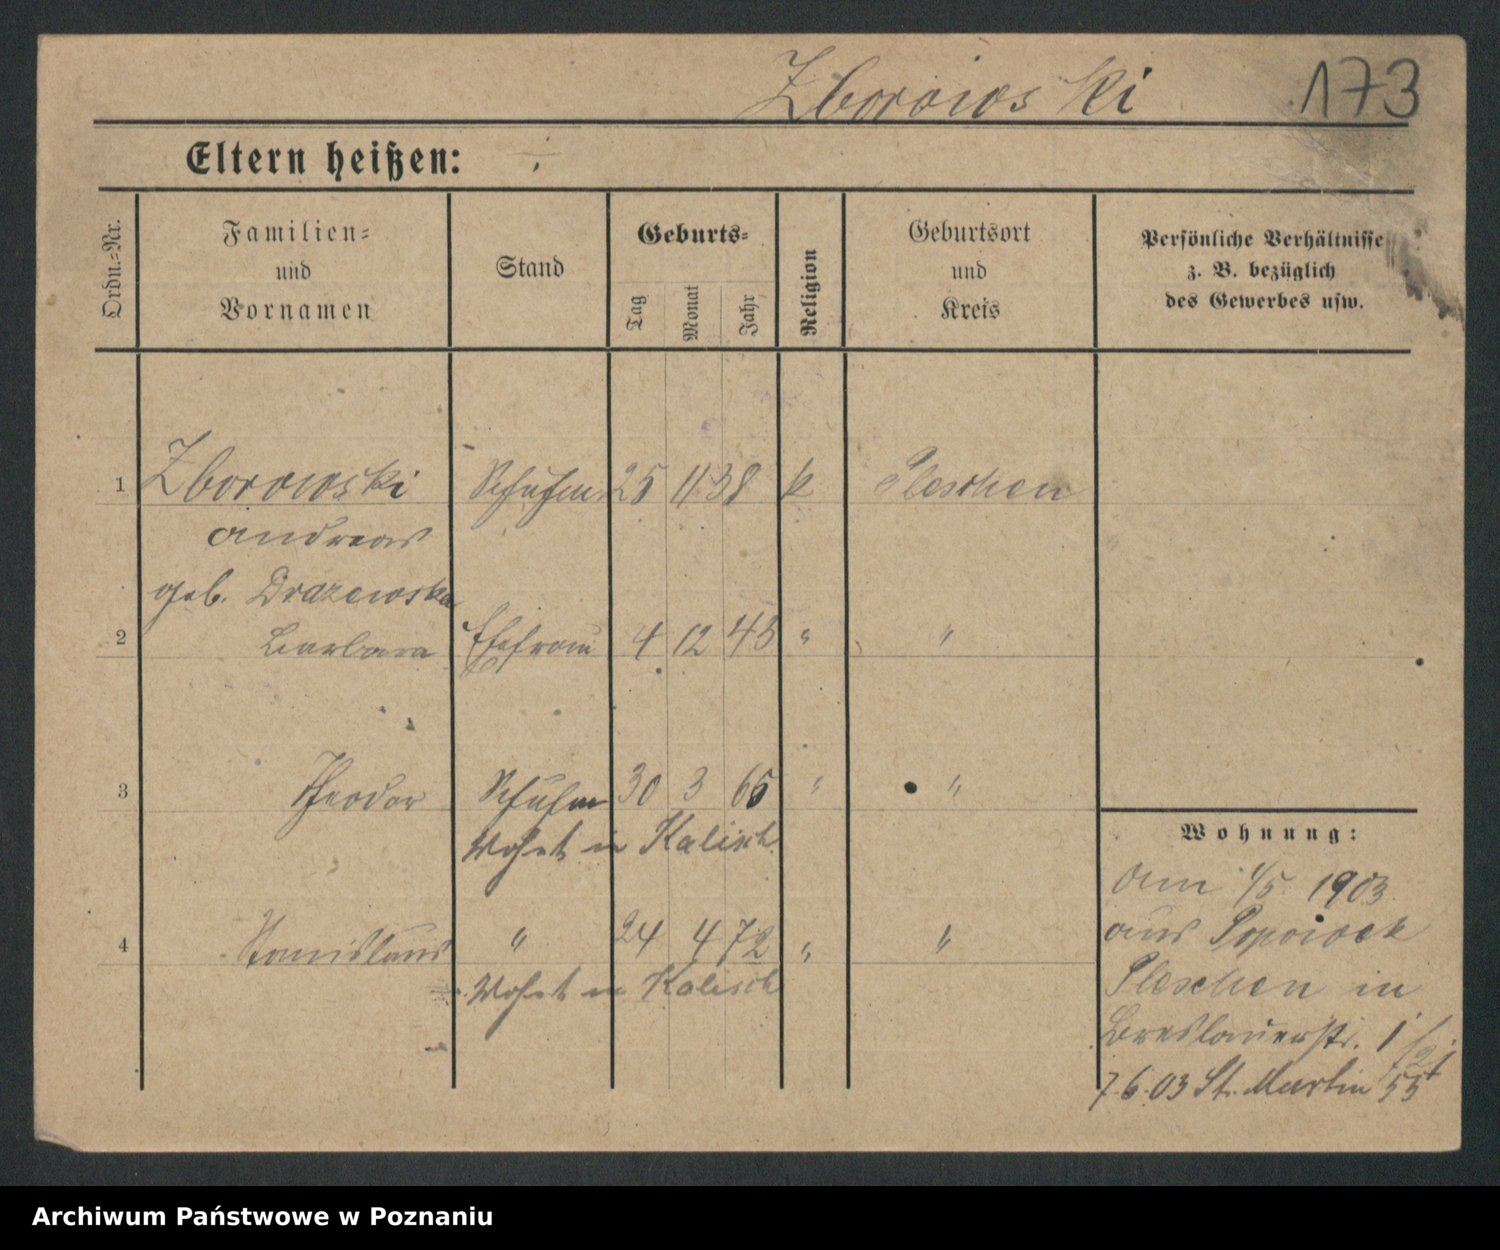 Zborowski 173
Eltern heißen:
Ordn.-Nr.
Familien-
und
Vornamen
Stand
Geburts-
Tag
Monat
Jahr
Religion
Geburtsort
und
Kreis
Persönliche Verhältnisse
z. B. bezüglich
des Gewerbes usw.
1 Zborowski Schuhm 25 11 38 k Pleschen
Andreas
geb. Drazewska
2 Barbara Ehefrau 4 12 43 " "
3 Theodor Schuhm 30 3 65 " "
Wohnt in Kalisch
4 Stanislaus " 24 4 72 " "
Wohnt in Kalisch
Wohnung:
Am 1/5 1903
aus
Pleschen in
Breslauerstr. 1
7.6.03 St. Martin 55
Archiwum Państwowe w Poznaniu